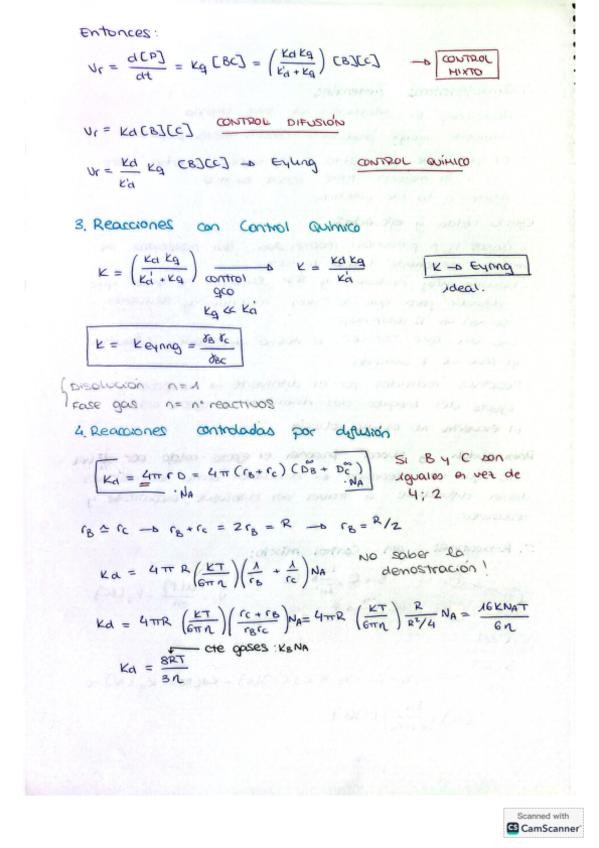 Entonces:
Vr = d[P]/dt = Kq [BC] = (Kd Kq / K'd + Kq) [B][C] → CONTROL MIXTO
Vr = Kd [B][C] CONTROL DIFUSIÓN
Vr = Kd/K'd Kq [B][C] → Eyring CONTROL QUÍMICO
3. Reacciones con Control Químico
K = (Kd Kq / K'd + Kq) → K = Kd Kq / K'd K → Eyring
control qco ideal.
Kq << K'd
K = Keyring = γB γC / γBC
Disolución n = 1
Fase gas n = nº reactivos
4. Reacciones controladas por difusión
Kd = 4π r D = 4π (rB + rC) (D∞B + D∞C) Si B y C son
· NA · NA iguales en vez de
4; 2
rB ≃ rC → rB + rC = 2rB = R → rB = R/2
No saber la
Kd = 4π R (KT/6πη) (1/rB + 1/rC) NA demostración!
Kd = 4πR (KT/6πη) (rC + rB / rB rC) NA = 4πR (KT/6πη) R / R²/4 NA = 16KNAT / 6η
cte gases: KBNA
Kd = 8RT / 3η
Scanned with
CS CamScanner